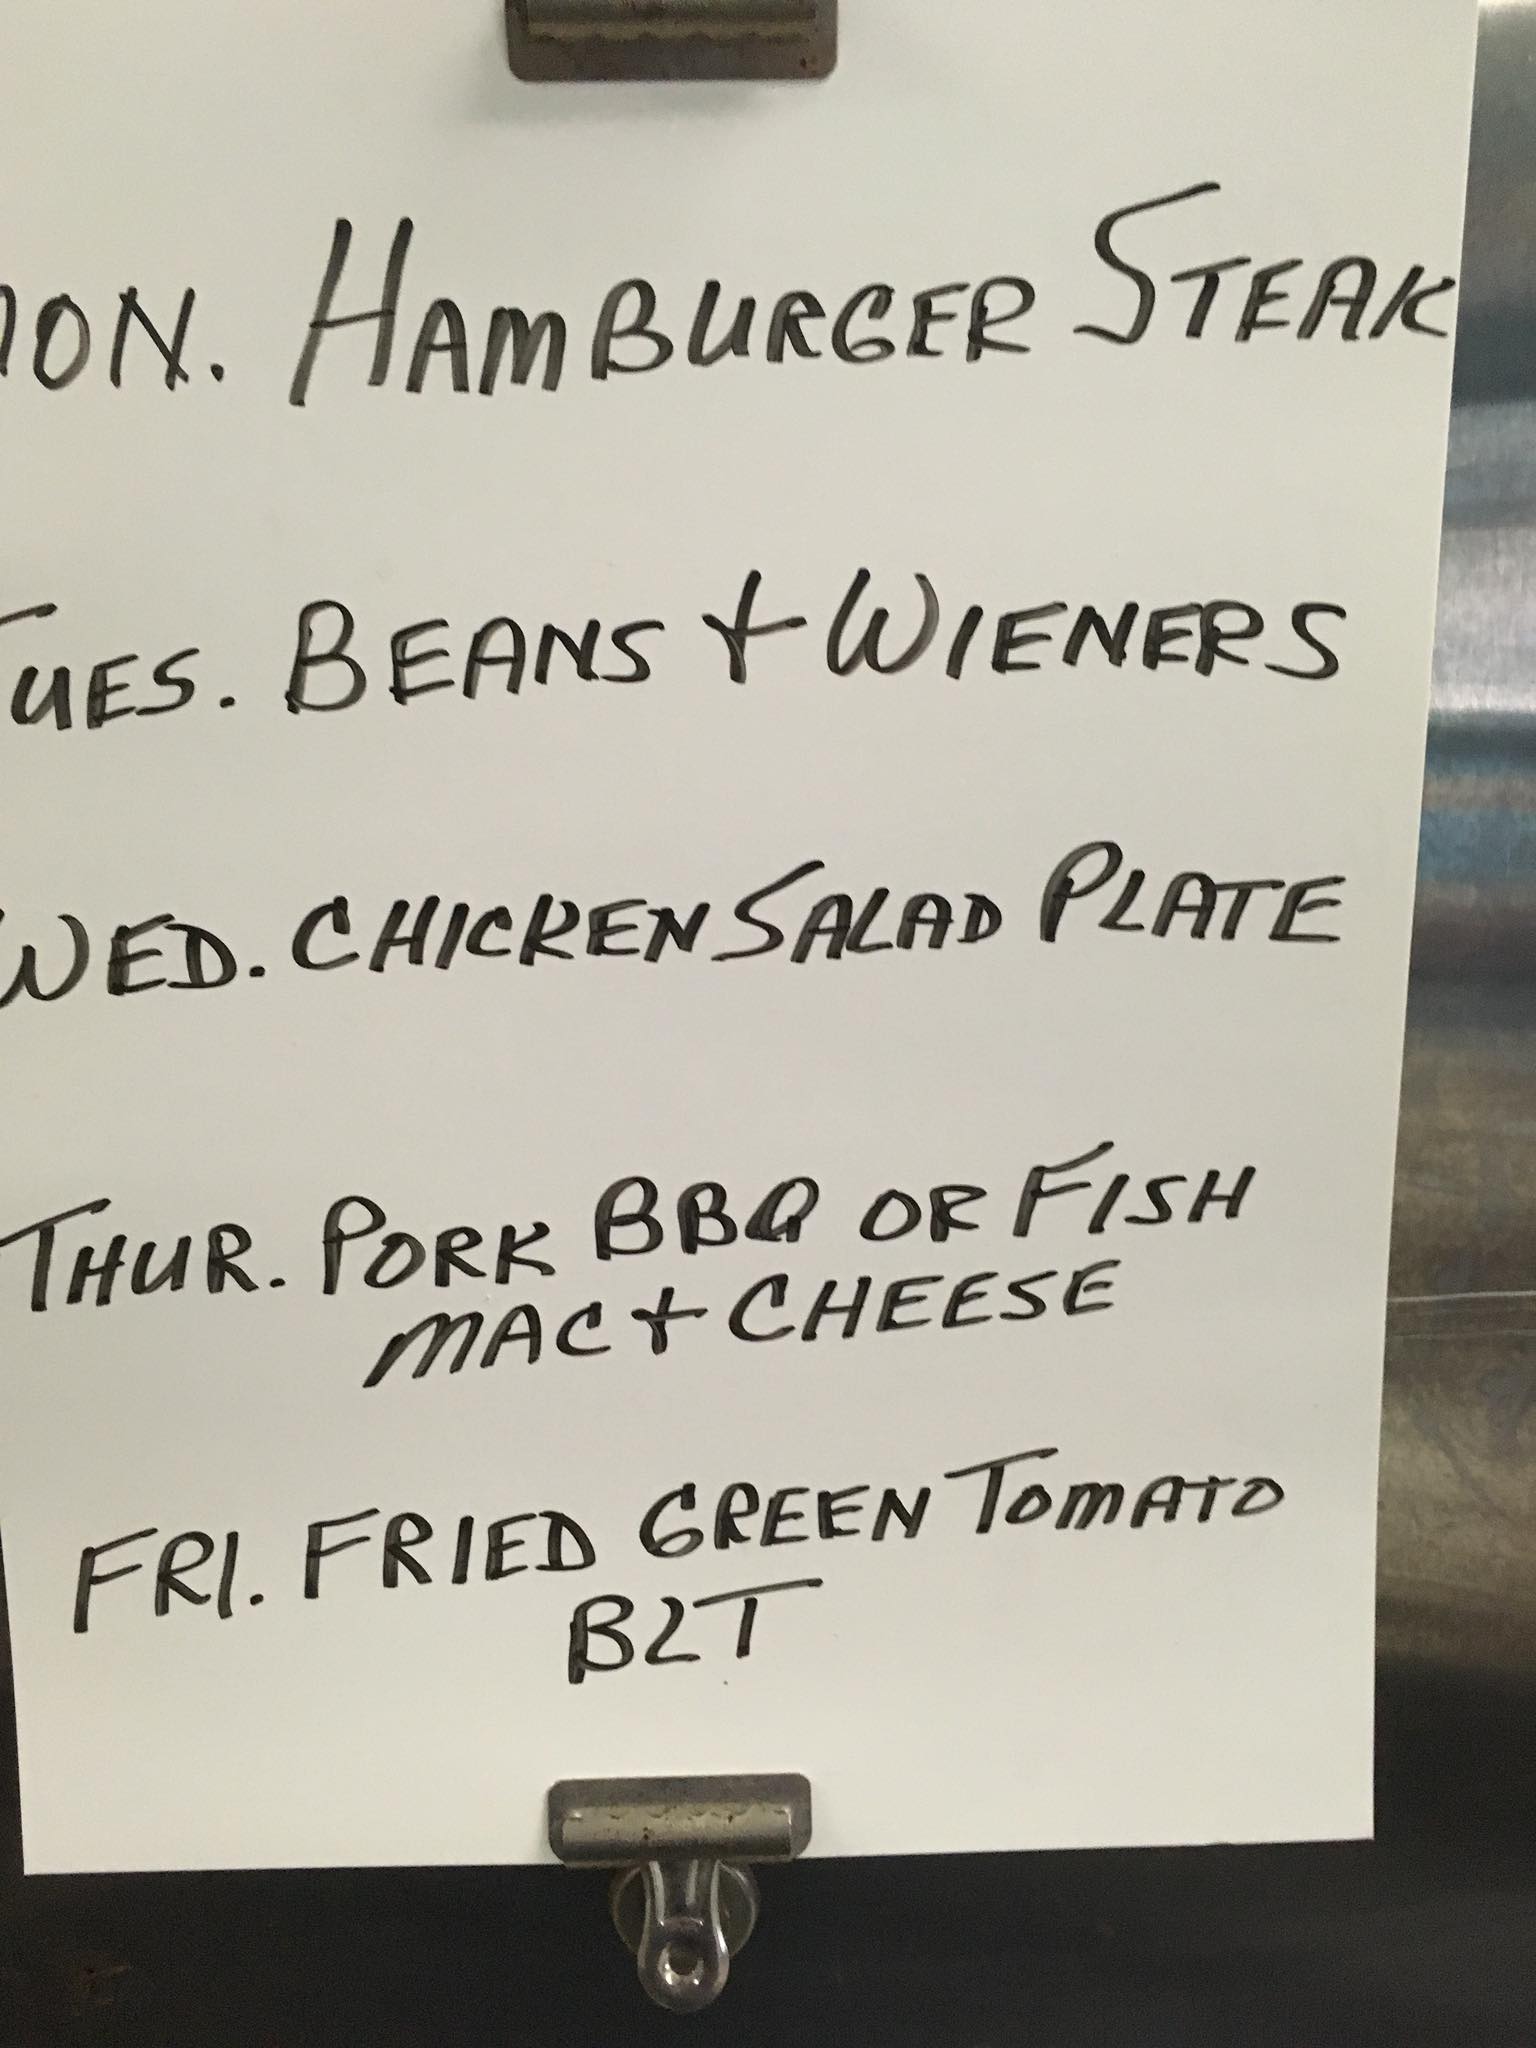 MON. HAMBURGER STEAK
TUES. BEANS + WIENERS
WED. CHICKEN SALAD PLATE
THUR. PORK BBQ OR FISH
MAC + CHEESE
FRI. FRIED GREEN TOMATO
BLT